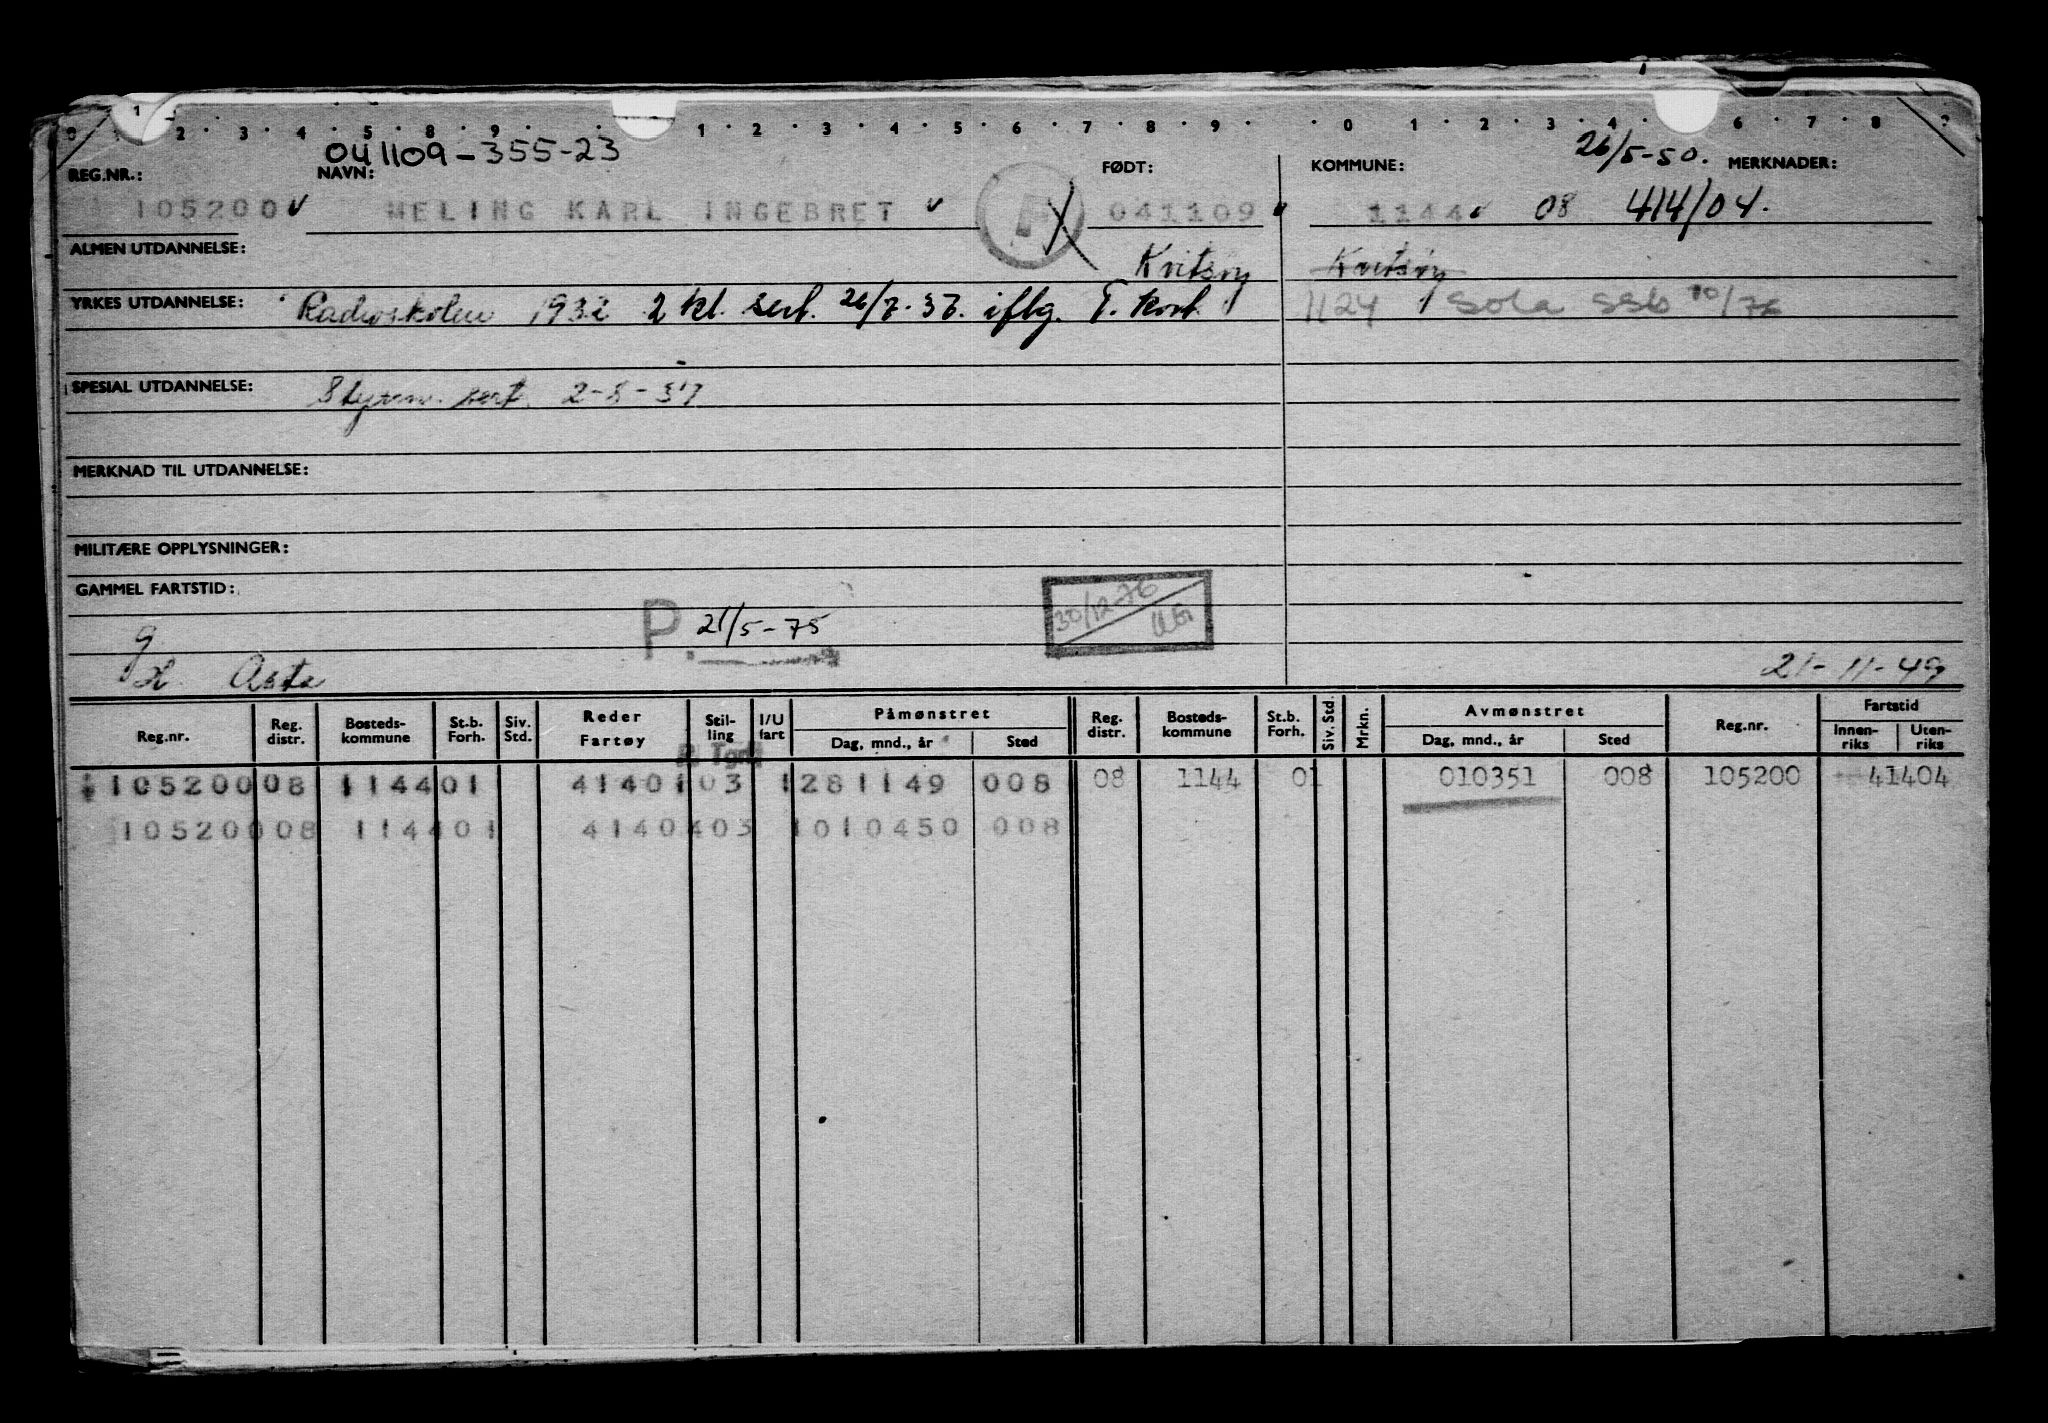 1 2 3 4 5 8 9 1 2 3 4 5 6 7 8 9 0 1 2 3 4 6 7 8
041109-355-23 26/5-50.
REG.NR.: NAVN: FØDT: KOMMUNE: MERKNADER:
105200 MELING KARL INGEBRET 041109 1144 08 414/04.
ALMEN UTDANNELSE: Kvitsøy Kvitsøy
YRKES UTDANNELSE: Radioskolen 1932 2 kl. sert. 26/7-37. iflg. T. kort. 1124 Sola SSB 10/76
SPESIAL UTDANNELSE: Styrm. sert. 2-8-37
MERKNAD TIL UTDANNELSE:
MILITÆRE OPPLYSNINGER:
GAMMEL FARTSTID:
P. 21/5-75 30/12-76
g
H. Asta 21-11-49
Reg.nr. Reg. distr. Bosteds-kommune St.b. Forh. Siv. Std. Reder Fartøy Stil-ling I/U fart Påmønstret Dag, mnd., år Sted Reg. distr. Bosteds-kommune St.b. Forh. Siv. Std. Mrkn. Avmønstret Dag, mnd., år Sted Reg.nr. Fartstid Innen-riks Uten-riks
R. Tgrf
105200 08 1144 01 41401 03 1 281149 008 08 1144 01 010351 008 105200 41404
105200 08 1144 01 41404 03 1 010450 008